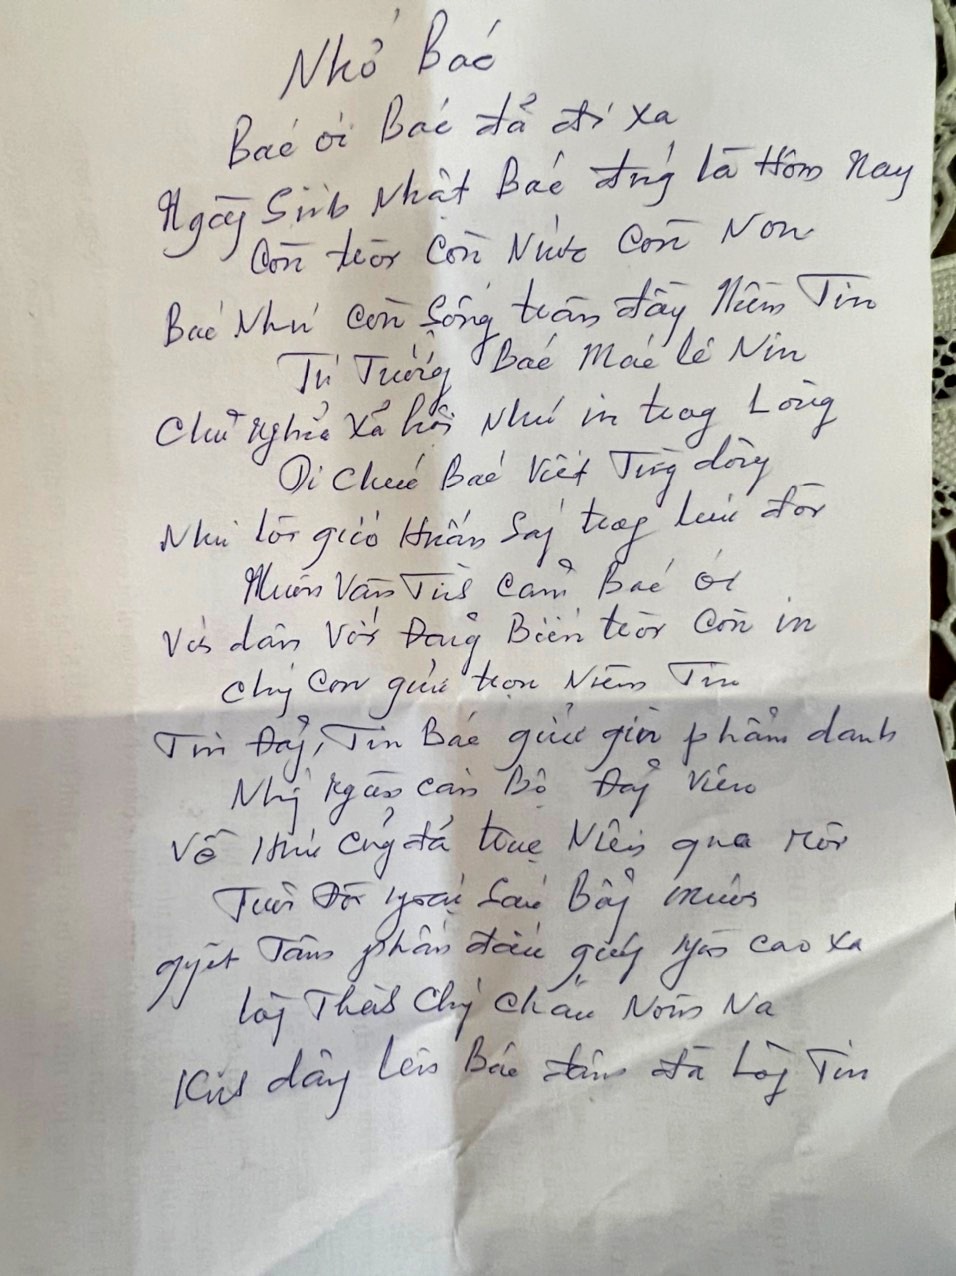 Nhớ Bác
Bác ơi Bác đã đi xa
Ngày Sinh Nhật Bác đúng là Hôm Nay
Còn trời Còn Nước Còn Non
Bác Như Còn Sống tràn đầy Niềm Tin
Tư Tưởng Bác Mác Lê Nin
Chủ Nghĩa Xã hội Như in trong Lòng
Di Chúc Bác Viết Từng dòng
Như lời giáo Huấn Sáng trong đời
Muôn Vàn Tình Cảm Bác ơi
Với dân Với Đảng Biển trời Còn in
Chúng Con giữ trọn Niềm Tin
Tin Đảng, Tin Bác giữ gìn phẩm danh
Những Ngàn cán Bộ Đảng Viên
Về Hưu Cũng đã Niên qua rồi
Tuổi Đời ngoài Sáu Bảy mươi
quyết Tâm phấn đấu cao xa
Lòng Thành Chúng Cháu Nôm Na
Kính dâng Lên Bác đậm đà Lòng Tin